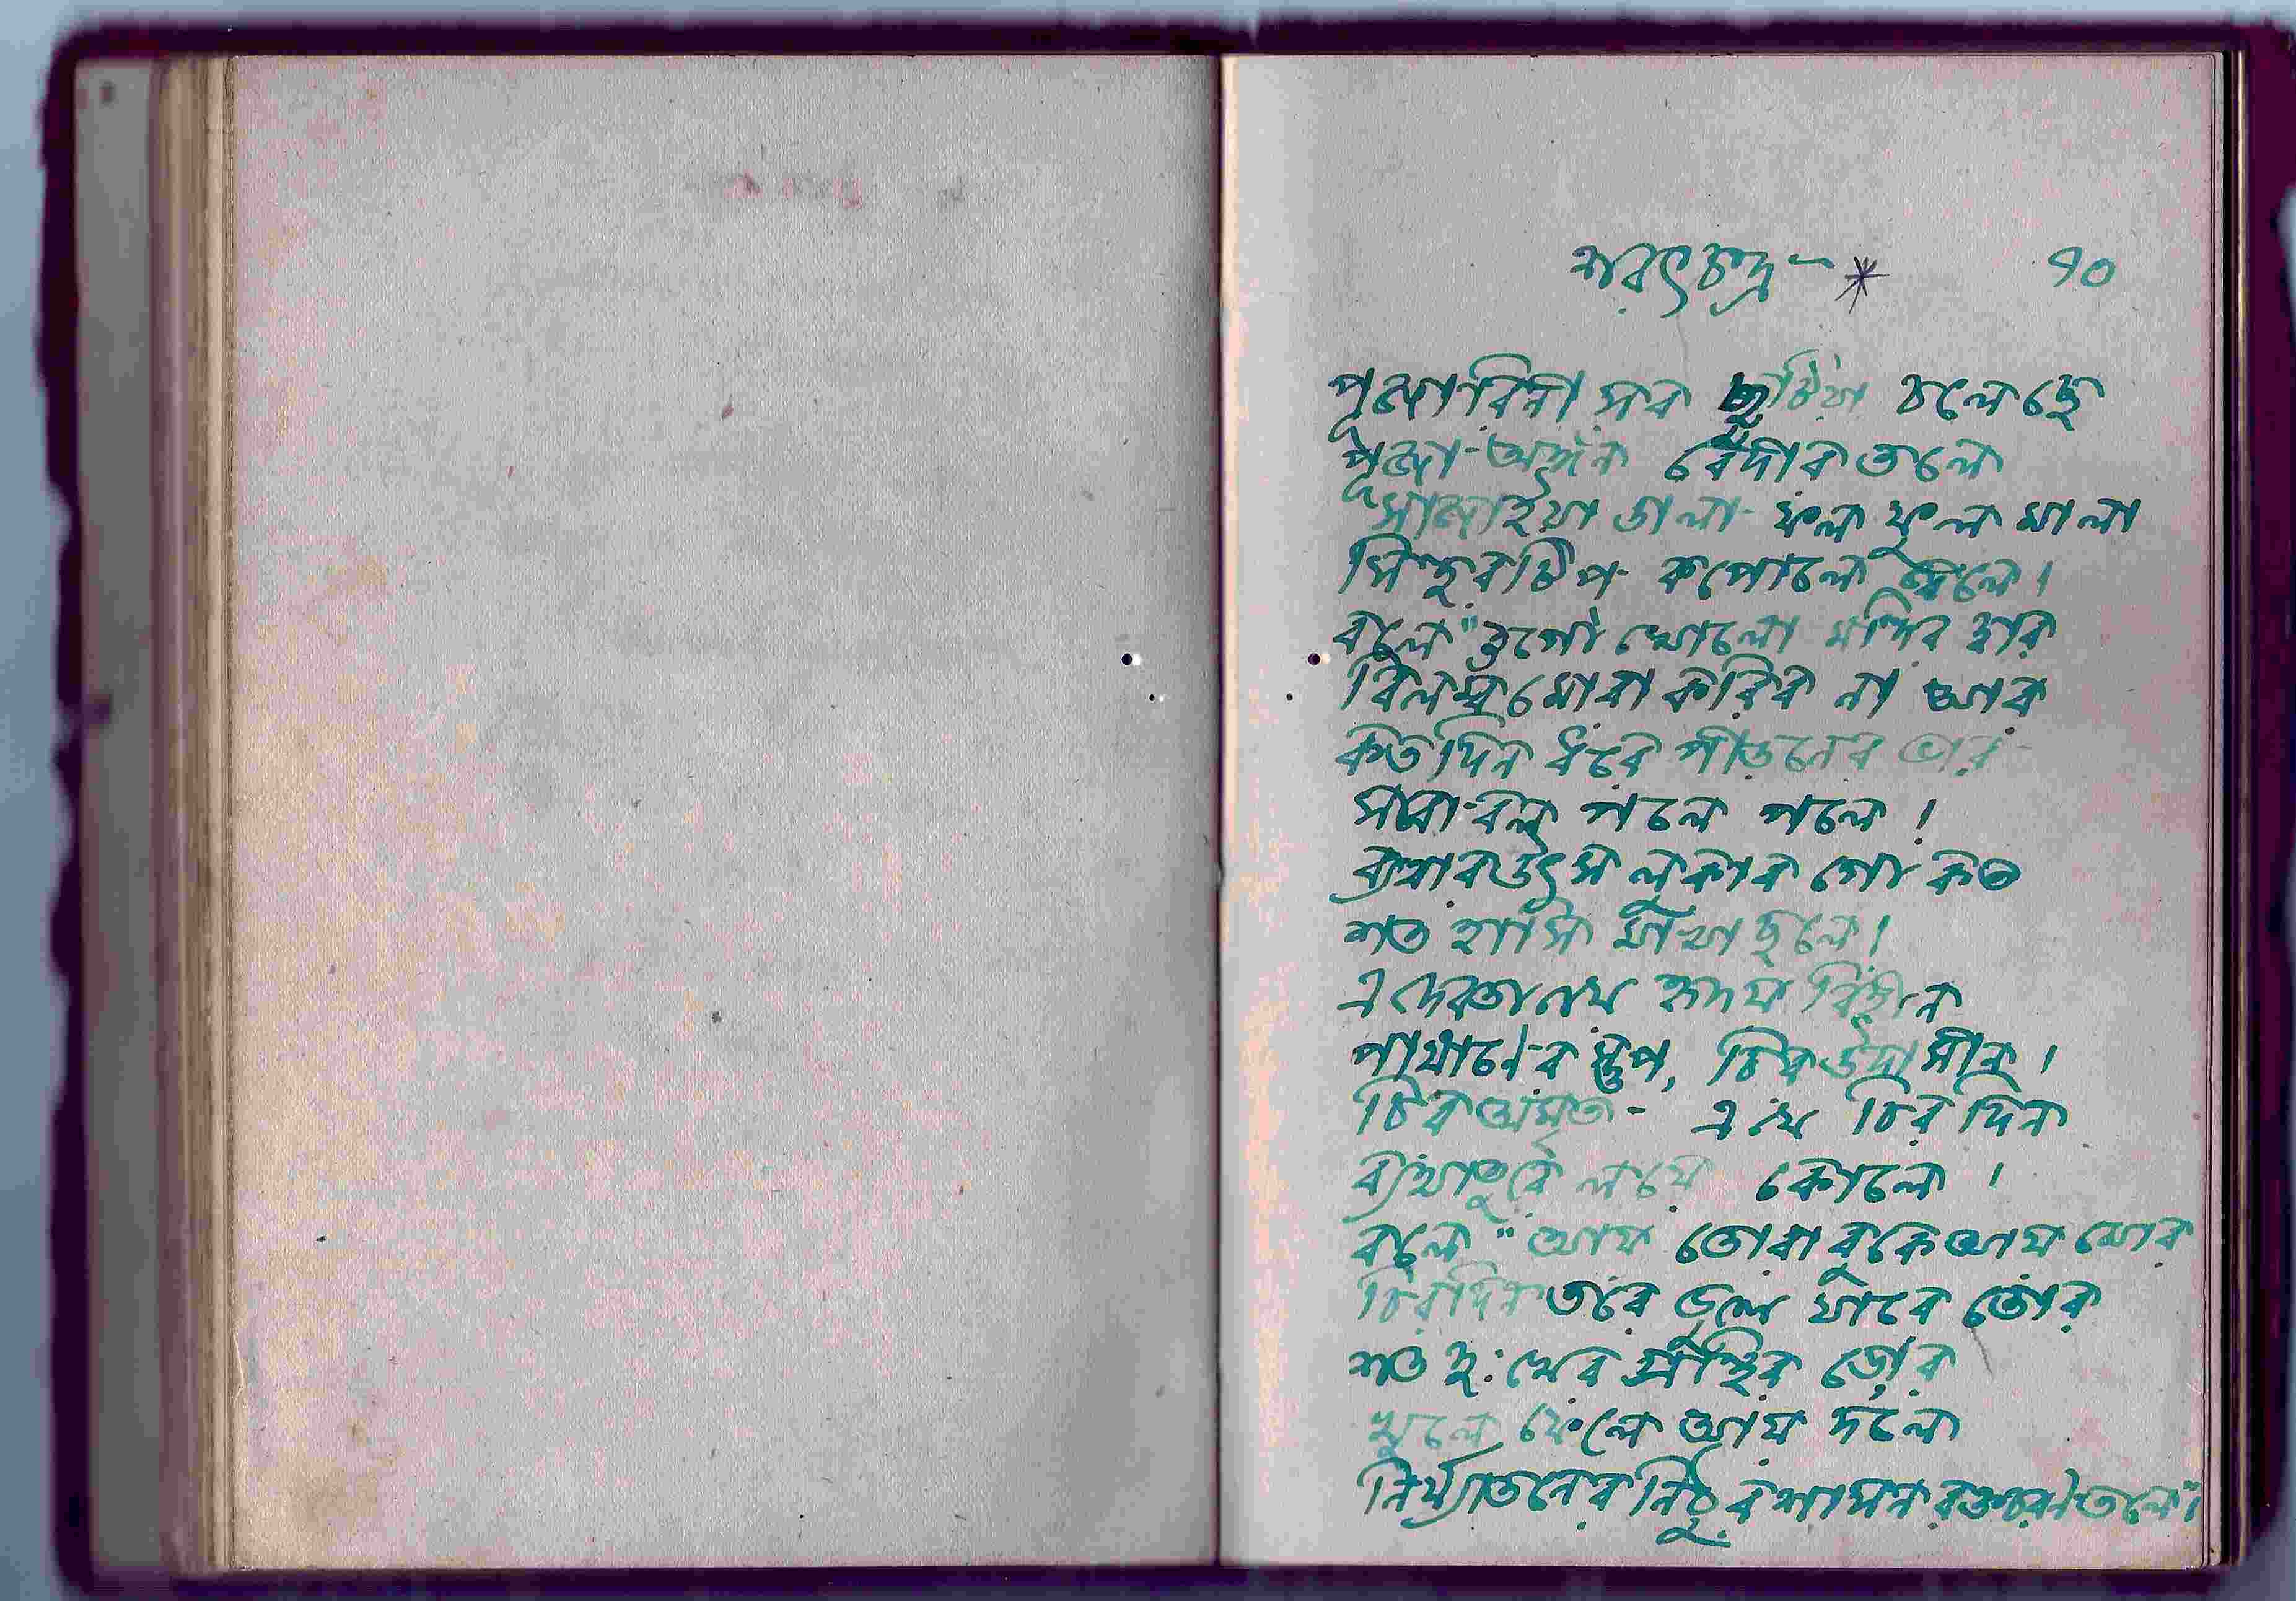 শরৎচন্দ্র - * ৭০
পূজারিনী সব ছুটিয়া চলেছে
পূজা-অঙ্গন বেদীর তলে
সাজাইয়া ডালা- ফল ফুল মালা
সিন্দুর টিপ কপোলে
বলে "ওগো খোলো মন্দির দ্বার
বিলম্ব মোরা করিব না আর
কতদিন ধরে পীড়নের ভার
সবো-বল পলে পলে।
ব্যথার উৎস লুকাব গো কত
শত হাসি মাখা ছলে।
এ দেবতা নয় হৃদয় বিহীন
পাষাণের স্তূপ, চির উদাসীন।
চির জাগ্রত - এ যে চির দিন
ব্যথাতুরে লয়ে কোলে।
বলে "আয় তোরা বুকে আয় মোর
চিরদিন তরে ভুলে যাবে তোর
শত দুঃখের গ্রন্থির ডোর
খুলে ফেলে আয় দলে
নির্য্যাতনের নিঠুর শাসন রক্তচরণ তলে"।